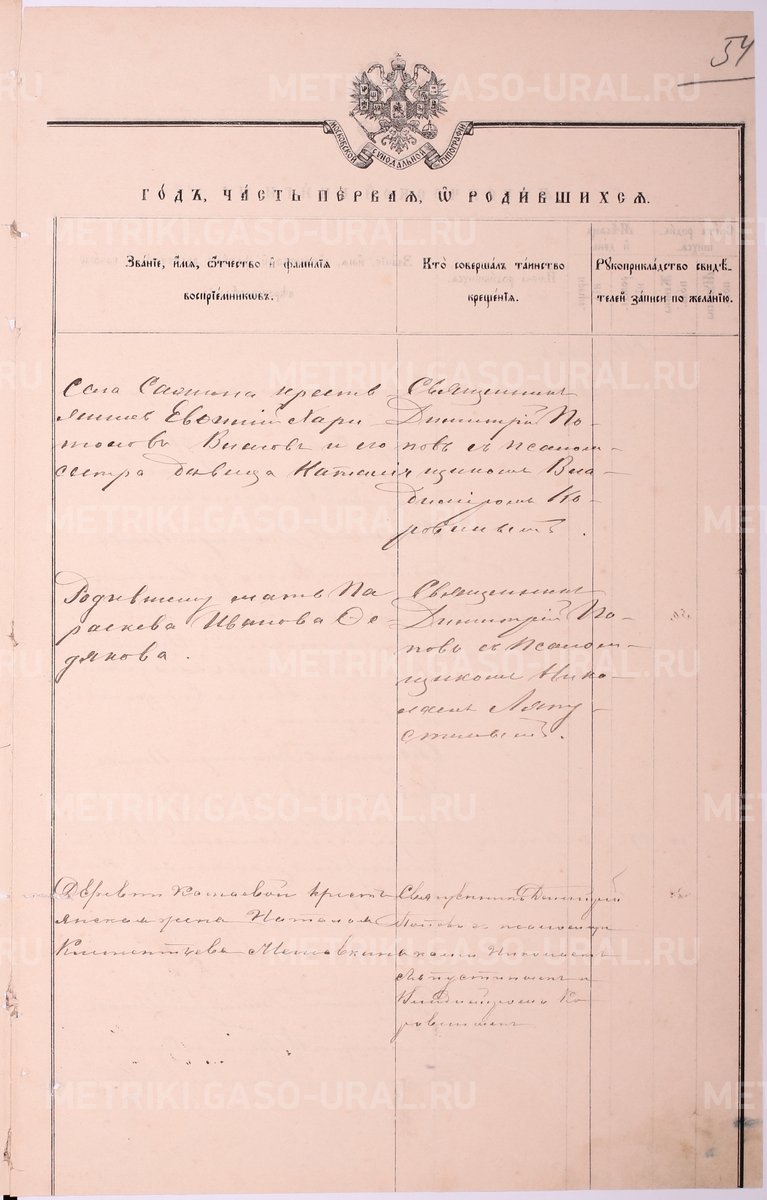 54
МОСКОВСКОЙ СѴНОДАЛЬНОЙ ТИПОГРАФІИ
ГО́ДЪ, ЧА́СТЬ ПЕ́РВАЯ, Ѡ҆ РОДИ́ВШИХСЯ.
Зва́нїе, и҆́мя, ѻ҆́тчество и҆ фами́лїя
воспрїе́мниковъ.
Кто̀ соверша́лъ та́инство
креще́нїя.
Рꙋкоприкла́дство свидѣ́-
телей за́писи по жела́нїю.
Села крестья
янинъ Евгеній Лари
оновъ и его
сестра дѣвица Наталія
Священникъ
Димитрій По-
повъ съ псалом-
щикомъ Вла-
диміромъ Ко-
ровинымъ.
мать Па
раскева Иванова Ѳе-
дякова.
Священникъ
Димитрій По-
повъ съ псалом-
щикомъ Нико-
лаемъ Ляпу-
стинымъ.
Деревни крестья
янская жена Наталія
Климентьева
Священникъ Димитрій
Поповъ съ псаломщи
ками Николаемъ
Ляпустинымъ и
Владиміромъ Ко
ровинымъ
METRIKI.GASO-URAL.RU